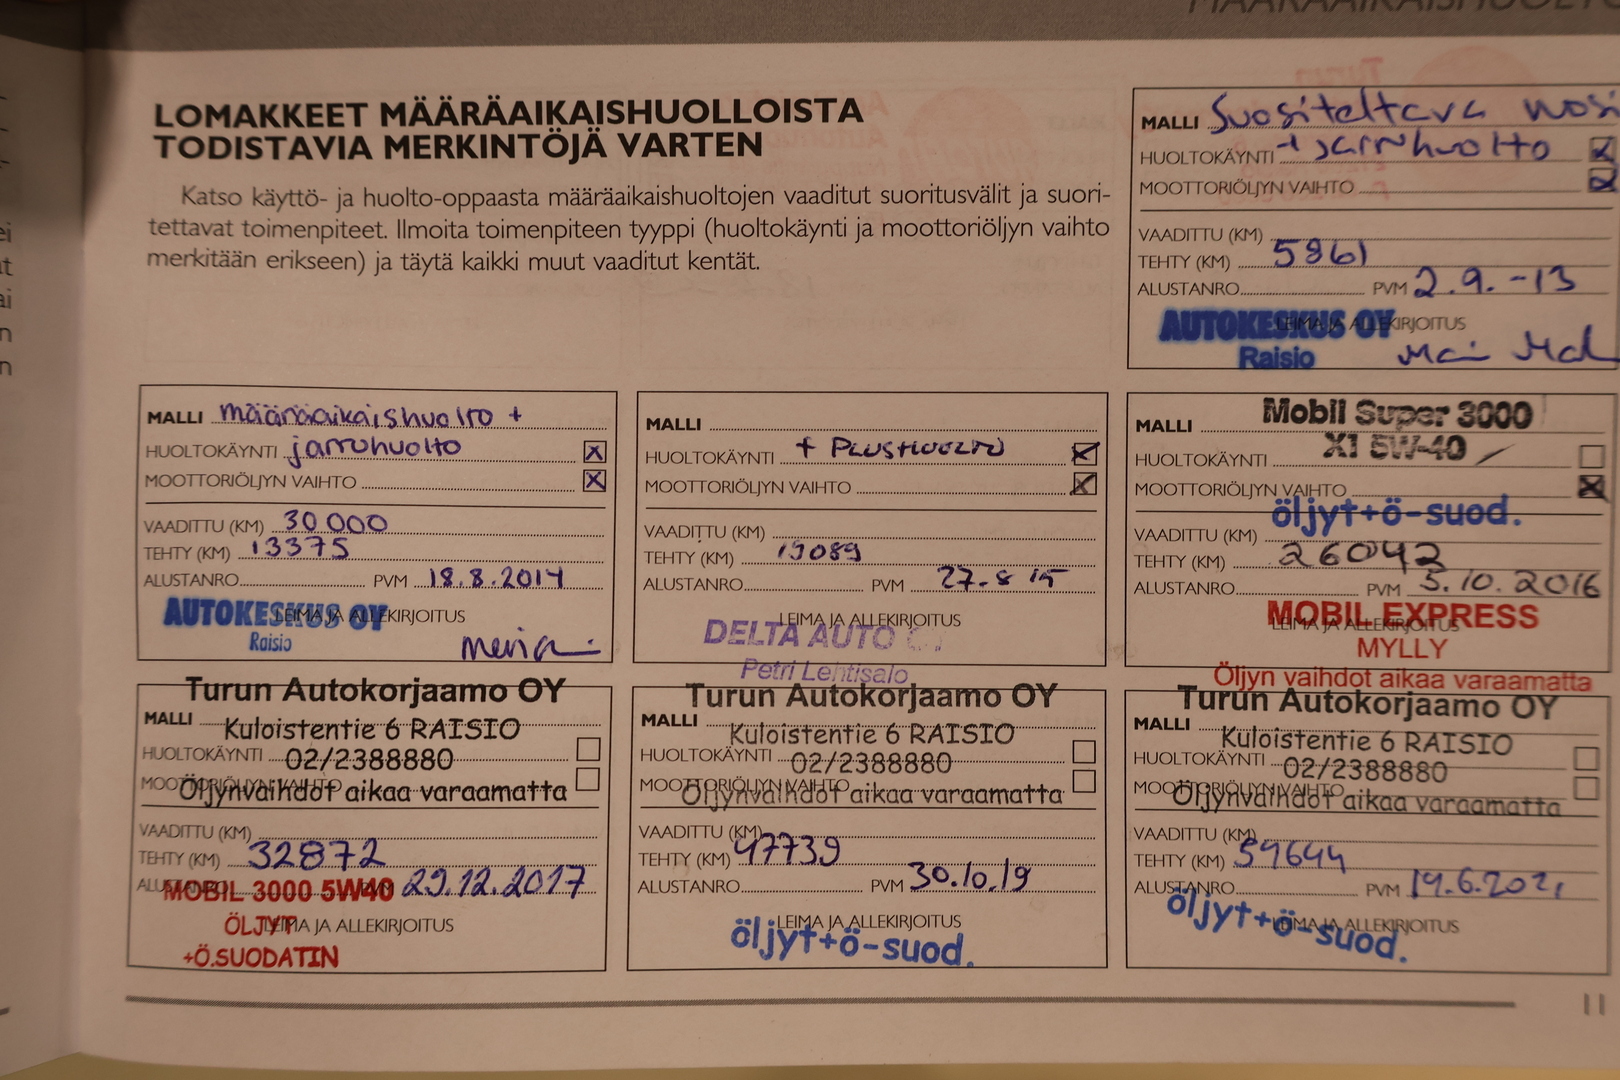 LOMAKKEET MÄÄRÄAIKAISHUOLLOISTA
TODISTAVIA MERKINTÖJÄ VARTEN
Katso käyttö- ja huolto-oppaasta määräaikaishuoltojen vaaditut suoritusvälit ja suori-
tettavat toimenpiteet. Ilmoita toimenpiteen tyyppi (huoltokäynti ja moottoriöljyn vaihto
merkitään erikseen) ja täytä kaikki muut vaaditut kentät.
MALLI Suositeltava
HUOLTOKÄYNTI + jarruhuolto
MOOTTORIÖLJYN VAIHTO
VAADITTU (KM)
TEHTY (KM) 5861
ALUSTANRO PVM 2.9.-13
LEIMA JA ALLEKIRJOITUS
AUTOKESKUS OY
Raisio
MALLI määräaikaishuolto +
HUOLTOKÄYNTI jarruhuolto
MOOTTORIÖLJYN VAIHTO
VAADITTU (KM) 30 000
TEHTY (KM) 13375
ALUSTANRO PVM 18.8.2014
LEIMA JA ALLEKIRJOITUS
AUTOKESKUS OY
Raisio
MALLI
HUOLTOKÄYNTI + PLUSHUOLTO
MOOTTORIÖLJYN VAIHTO
VAADITTU (KM)
TEHTY (KM) 19089
ALUSTANRO PVM 27.8 15
LEIMA JA ALLEKIRJOITUS
DELTA AUTO
Petri Lehtisalo
MALLI Mobil Super 3000
HUOLTOKÄYNTI X1 5W-40
MOOTTORIÖLJYN VAIHTO
öljyt+ö-suod.
VAADITTU (KM)
TEHTY (KM) 26042
ALUSTANRO PVM 5.10.2016
LEIMA JA ALLEKIRJOITUS
MOBIL EXPRESS
MYLLY
Öljyn vaihdot aikaa varaamatta
Turun Autokorjaamo OY
MALLI
Kuloistentie 6 RAISIO
HUOLTOKÄYNTI
02/2388880
MOOTTORIÖLJYN VAIHTO
Öljynvaihdot aikaa varaamatta
VAADITTU (KM)
TEHTY (KM) 32872
ALUSTANRO PVM 29.12.2017
MOBIL 3000 5W40
LEIMA JA ALLEKIRJOITUS
ÖLJYT
+Ö.SUODATIN
Turun Autokorjaamo OY
MALLI
Kuloistentie 6 RAISIO
HUOLTOKÄYNTI
02/2388880
MOOTTORIÖLJYN VAIHTO
Öljynvaihdot aikaa varaamatta
VAADITTU (KM)
TEHTY (KM) 47739
ALUSTANRO PVM 30.10.19
LEIMA JA ALLEKIRJOITUS
öljyt+ö-suod.
Turun Autokorjaamo OY
MALLI
Kuloistentie 6 RAISIO
HUOLTOKÄYNTI
02/2388880
MOOTTORIÖLJYN VAIHTO
Öljynvaihdot aikaa varaamatta
VAADITTU (KM)
TEHTY (KM) 59644
ALUSTANRO PVM 14.6.2021
LEIMA JA ALLEKIRJOITUS
öljyt+ö-suod.
11